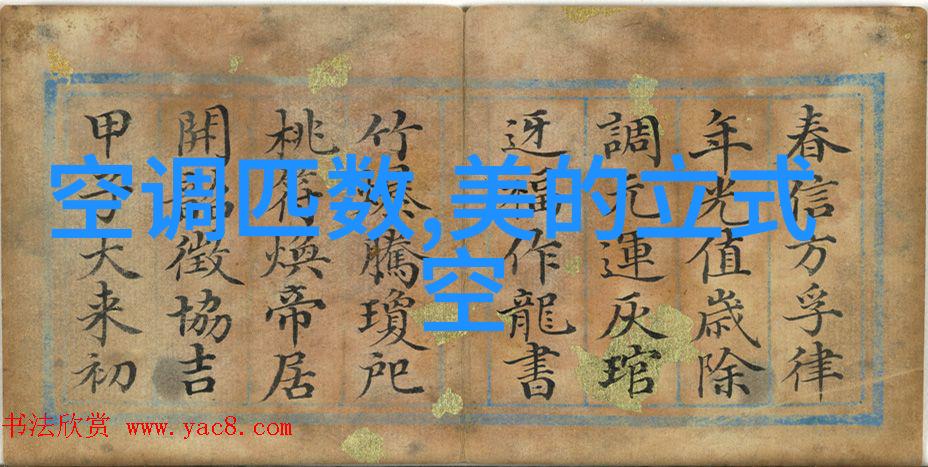 空调匹数,美的立式
空
春信方孚律
年光值歲除
調元運灰琯
迓福作龍書
竹爆騰瓊戺
桃符煥帝居
開韶徵協吉
甲子大来初
书法欣赏 www.yac8.com